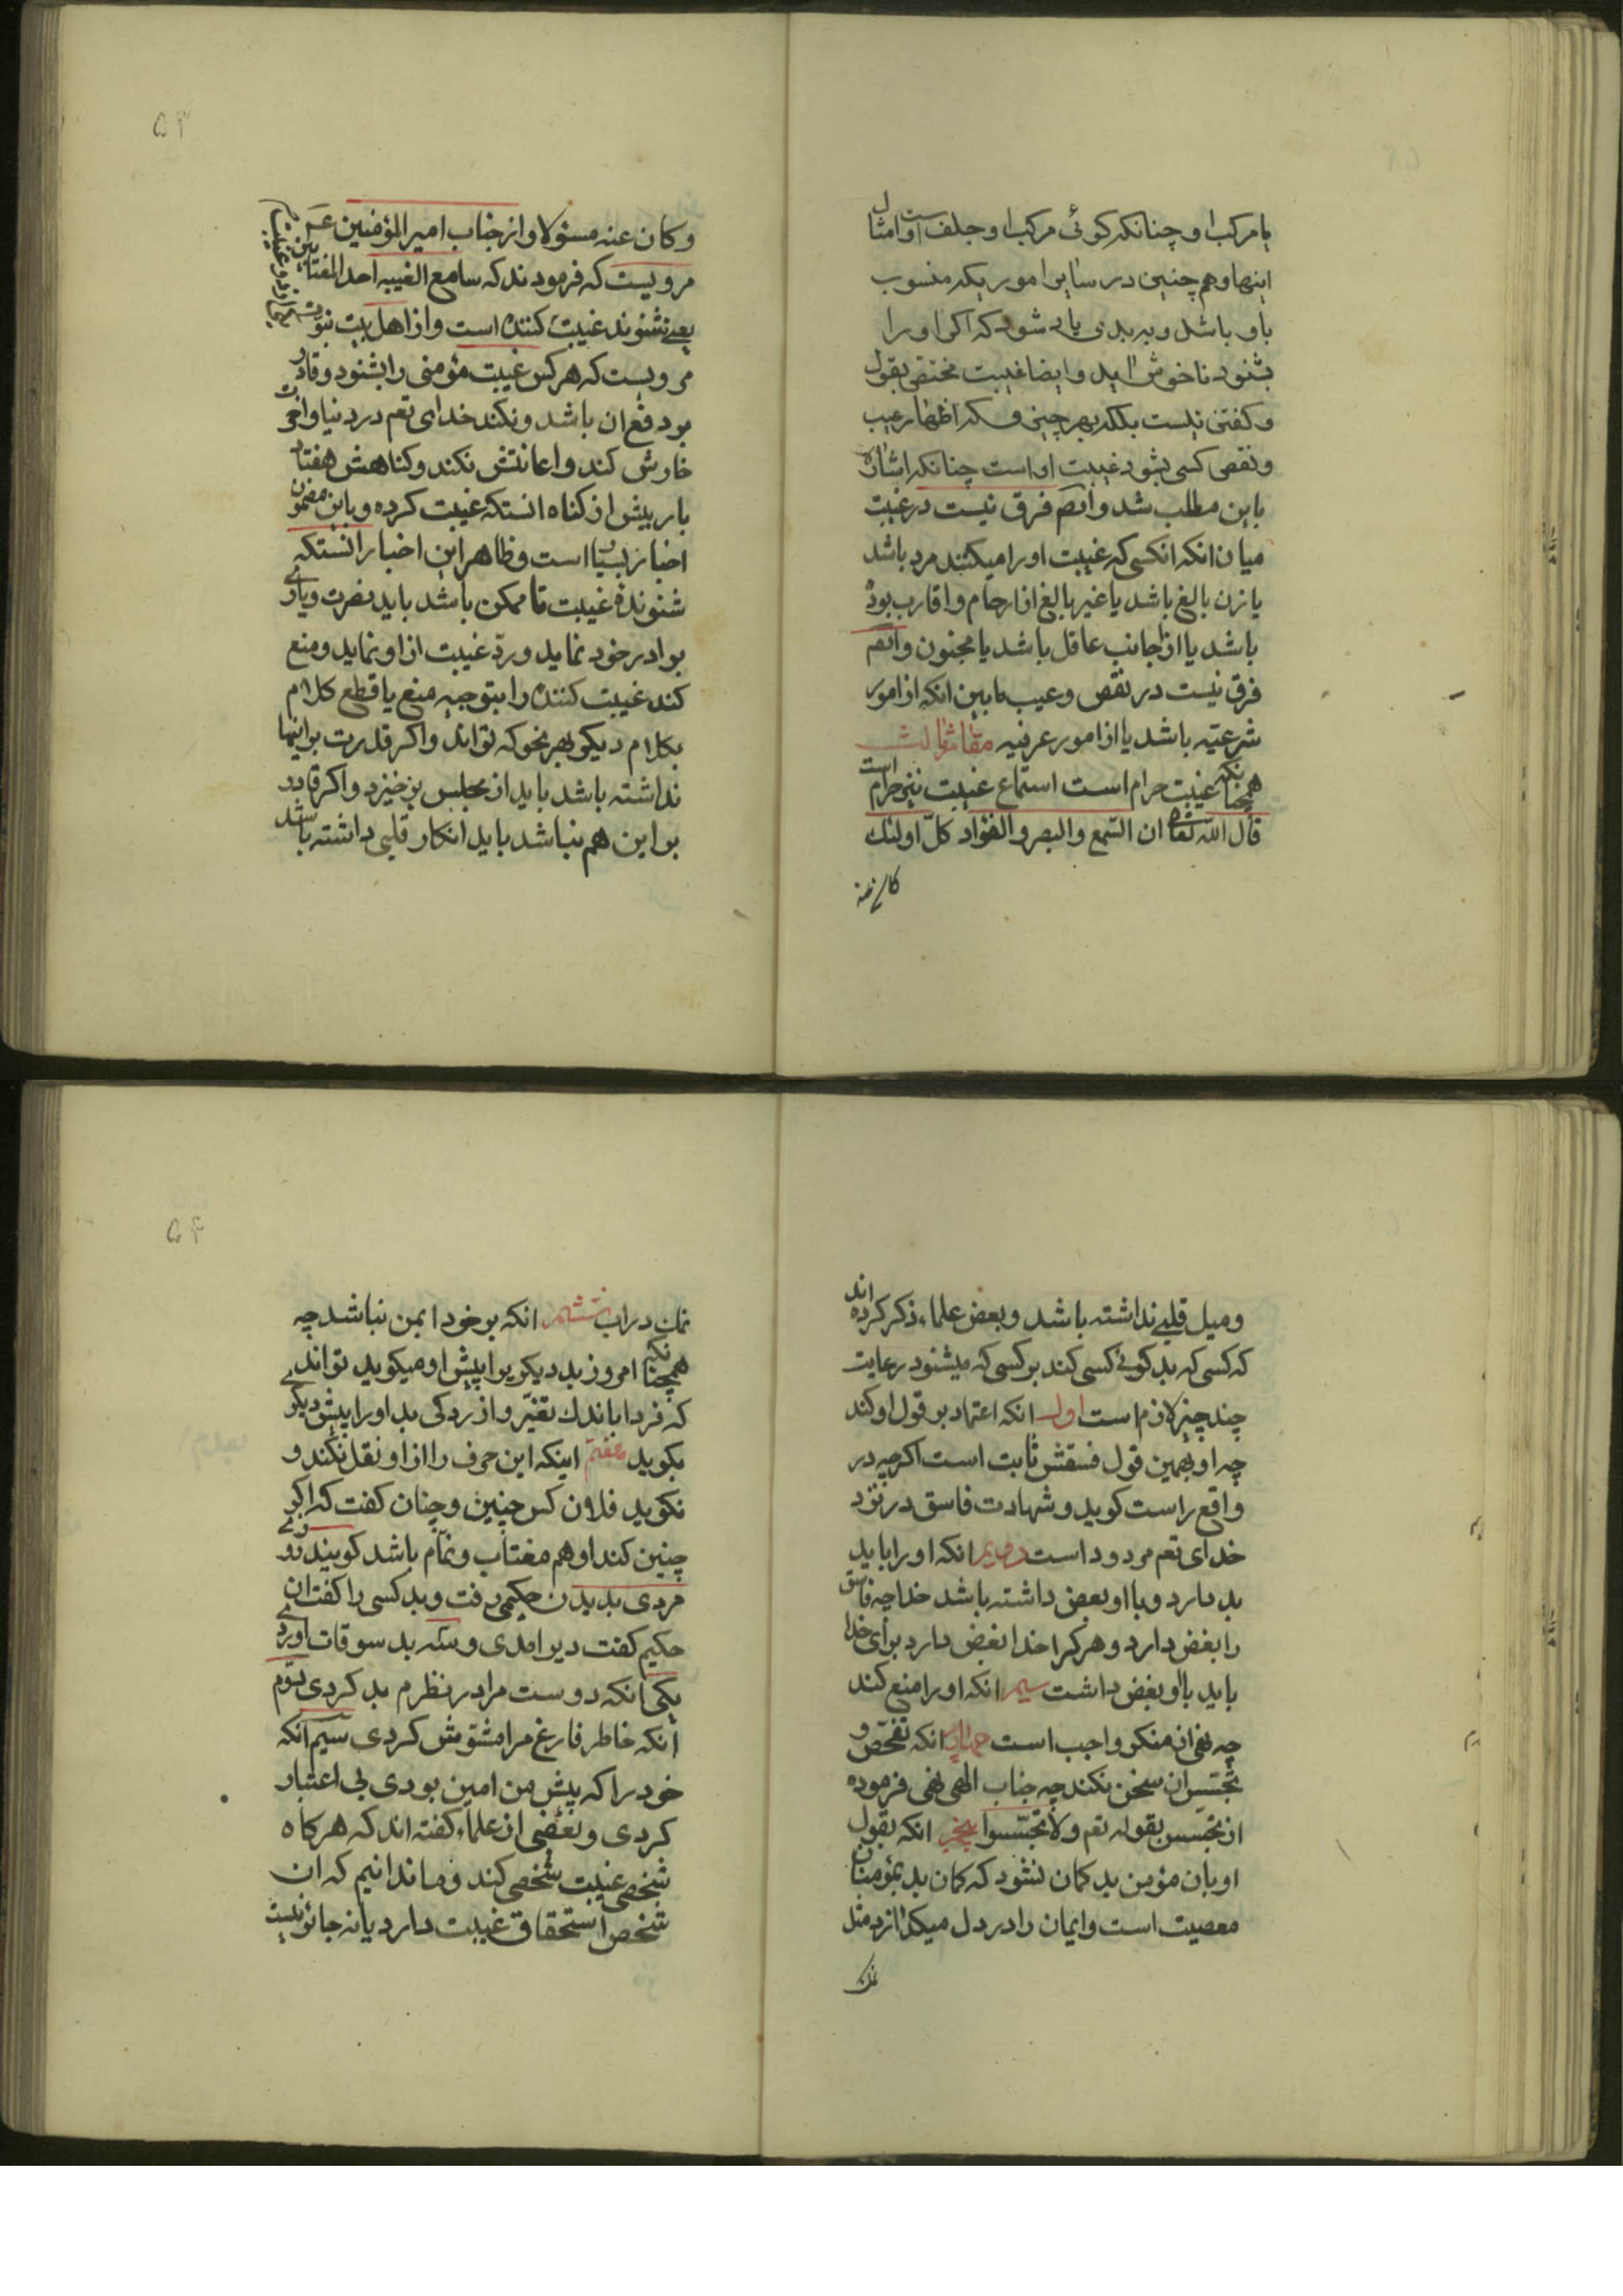 یا مرکب او چنانکه کوئی مرکب او جلف است و امثال
اینها و هم چنین در سایر اموریکه منسوب
باو باشد و به بدی یاد شود که اکر او را
بشنود ناخوش اید و ایضا غیبت مختص بقول
و کفتن نیست بلکه بهر چیزی که اظهار عیب
و نقص کسی بشود غیبت او است چنانکه اشاره
باین مطلب شد و ایضا فرق نیست در غیبت
میان انکه انکسی که غیبت او را میکنند مرد باشد
یا زن بالغ باشد یا غیر بالغ از ارحام و اقارب بوده
باشد یا از اجانب عاقل باشد یا مجنون و ایضا
فرق نیست در نقص و عیب مابین انکه از امور
شرعیّه باشد یا از امور عرفیه مقام ثالث
همچنانکه غیبت حرام است استماع غیبت نیز حرام است
قال الله تعالی ان السّمع و البصر و الفؤاد کلّ اولئک
کان عنه
۵۳
و کان عنه مسئولا و از جناب امیر المؤمنین ع
مرویست که فرمودند که سامع الغیبه احد المغتابین
یعنی شنونده غیبت کننده است و از اهل بیت نبوت
مرویست که هر کس غیبت مؤمنی را بشنود و قادر
بر دفع ان باشد و نکند خدای تعم در دنیا و اخرت
خارش کند و اعانتش نکند و کناهش هفتاد
بار بیش از کناه انستکه غیبت کرده و باین مضمون
اخبار بسیار است و ظاهر این اخبار انستکه
شنونده غیبت تا ممکن باشد باید نصرت و یاری
برادر خود نماید و ردّ غیبت از او نماید و منع
کند غیبت کننده را بتوجیه منع یا قطع کلام
بکلام دیکر بهر نحو که تواند و اکر قدرت بر اینها
نداشته باشد باید از مجلس برخیزد و اکر قادر
بر این هم نباشد باید انکار قلبی داشته باشد
و میل قلبی نداشته باشد و بعض علماء ذکر کرده اند
که کسی که بد کوئی کسی کند بر کسی که میشنود رعایت
چند چیز لازم است اول انکه اعتماد بر قول او کند
چه او بهمین قول فسقش ثابت است اکرچه در
واقع راست کوید و شهادت فاسق در نزد
خدای تعم مردود است دویم انکه او را باید
بد دارد و با او بعض داشته باشد خدا چه فاسق
را بغض دارد و هر کرا خدا بغض دارد برای خدا
باید با او بغض داشت سیم انکه او را منع کند
چه نهی از منکر واجب است چهارم انکه تفحّص و
تجسّس ان سخن نکند چه جناب الهی نهی فرموده
از تجسّس بقوله تعم و لا تجسّسوا پنجم انکه بقول
او بان مؤمن بد کمان نشود که کمان بد بمؤمنان
معصیت است و ایمان را در دل میکدازد مثل
نمک
۵۴
نمک در اب ششم انکه بر خود ایمن نباشد چه
همچنانکه امروز بد دیکریرا پیش او میکوید تواند
که فردا باندک تغیّر و ازردکی بد او را پیش دیکری
بکوید هفتم اینکه این حرف را از او نقل نکند و
نکوید فلان کس چنین و چنان کفت که اکر
چنین کند او هم مغتاب و نمّام باشد کویند روزی
مردی بدیدن حکیمی رفت و بد کسی را کفت ان
حکیم کفت دیر امدی و سه بد سوقات اوردی
یکی انکه دوست مرا در نظرم بد کردی دوّم
انکه خاطر فارغ مرا مشوّش کردی سیم انکه
خود را که پیش من امین بودی بی اعتبار
کردی و بعضی از علماء کفته اند که هر کاه
شخصی غیبت شخصی کند و ما ندانیم که ان
شخص استحقاق غیبت دارد یا نه جائز نیست